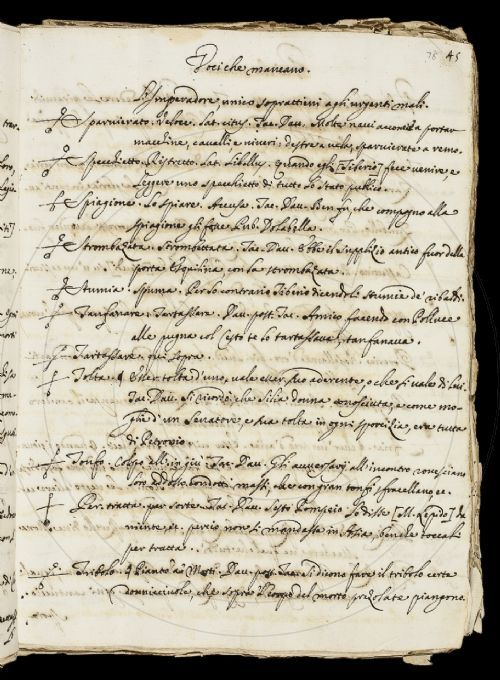 78 45
Voci che mancano.
L'Imperadore unico soprattieni agli urgenti mali.
Sparvierato. Veloce. Lat. citus. Tac. Dav. Molte navi acconce a portar
macchine, cavalli e viveri: destre a vela, sparvierate a remo.
Specchietto. Ristretto. Lat. Libellus. quando egli [Tiberio] fece venire e
leggere uno specchietto di tutto lo stato publico.
Spiagione. Lo spiare. Accusa. Tac. Dav. Ben fu che compagno alla
spiagione gli fosse Pub. Dolabella.
Strombazzata. Strombettata. Tac. Dav. Ebbe il supplizio antico fuor della
porta Esquilina con la strombazzata.
Stumia. Spuma. Per lo contrario Tiberio dicendoli stumia de' ribaldi.
Tanfanare: Tartassare. Dav. post. Tac. Amico facendo con Polluce
alle pugna col cesti te lo tartassava, tanfanava.
Tartassare. qui sopra.
Tolta. Esser tolta d'uno, vale esser suo aderente, o che si vale di lui.
Tac. Dav. Si che Silia donna conosciuta, e come mo-
glie d'un Senatore e sua tolta in ogni sporcizia, era tutta
di Petronio.
Tonfo. Colpo all'in giù. Tac. Dav. Gli avversarj all'incontro rovesciano
loro addosso massi, che con gran tonfi sfracellano ec.
Per tratta, per sorte. Tac. Dav. Sesto Pompeio disse [M. Lepido]
niente, et perciò non si mandasse in Asia, benche toccasse
per tratta.
Tribolo. Pianto de' Morti. Dav. post. Tac. Si dicono fare il tribolo certe
donnicciuole, che sopra il corpo del morto prezolate piangono.